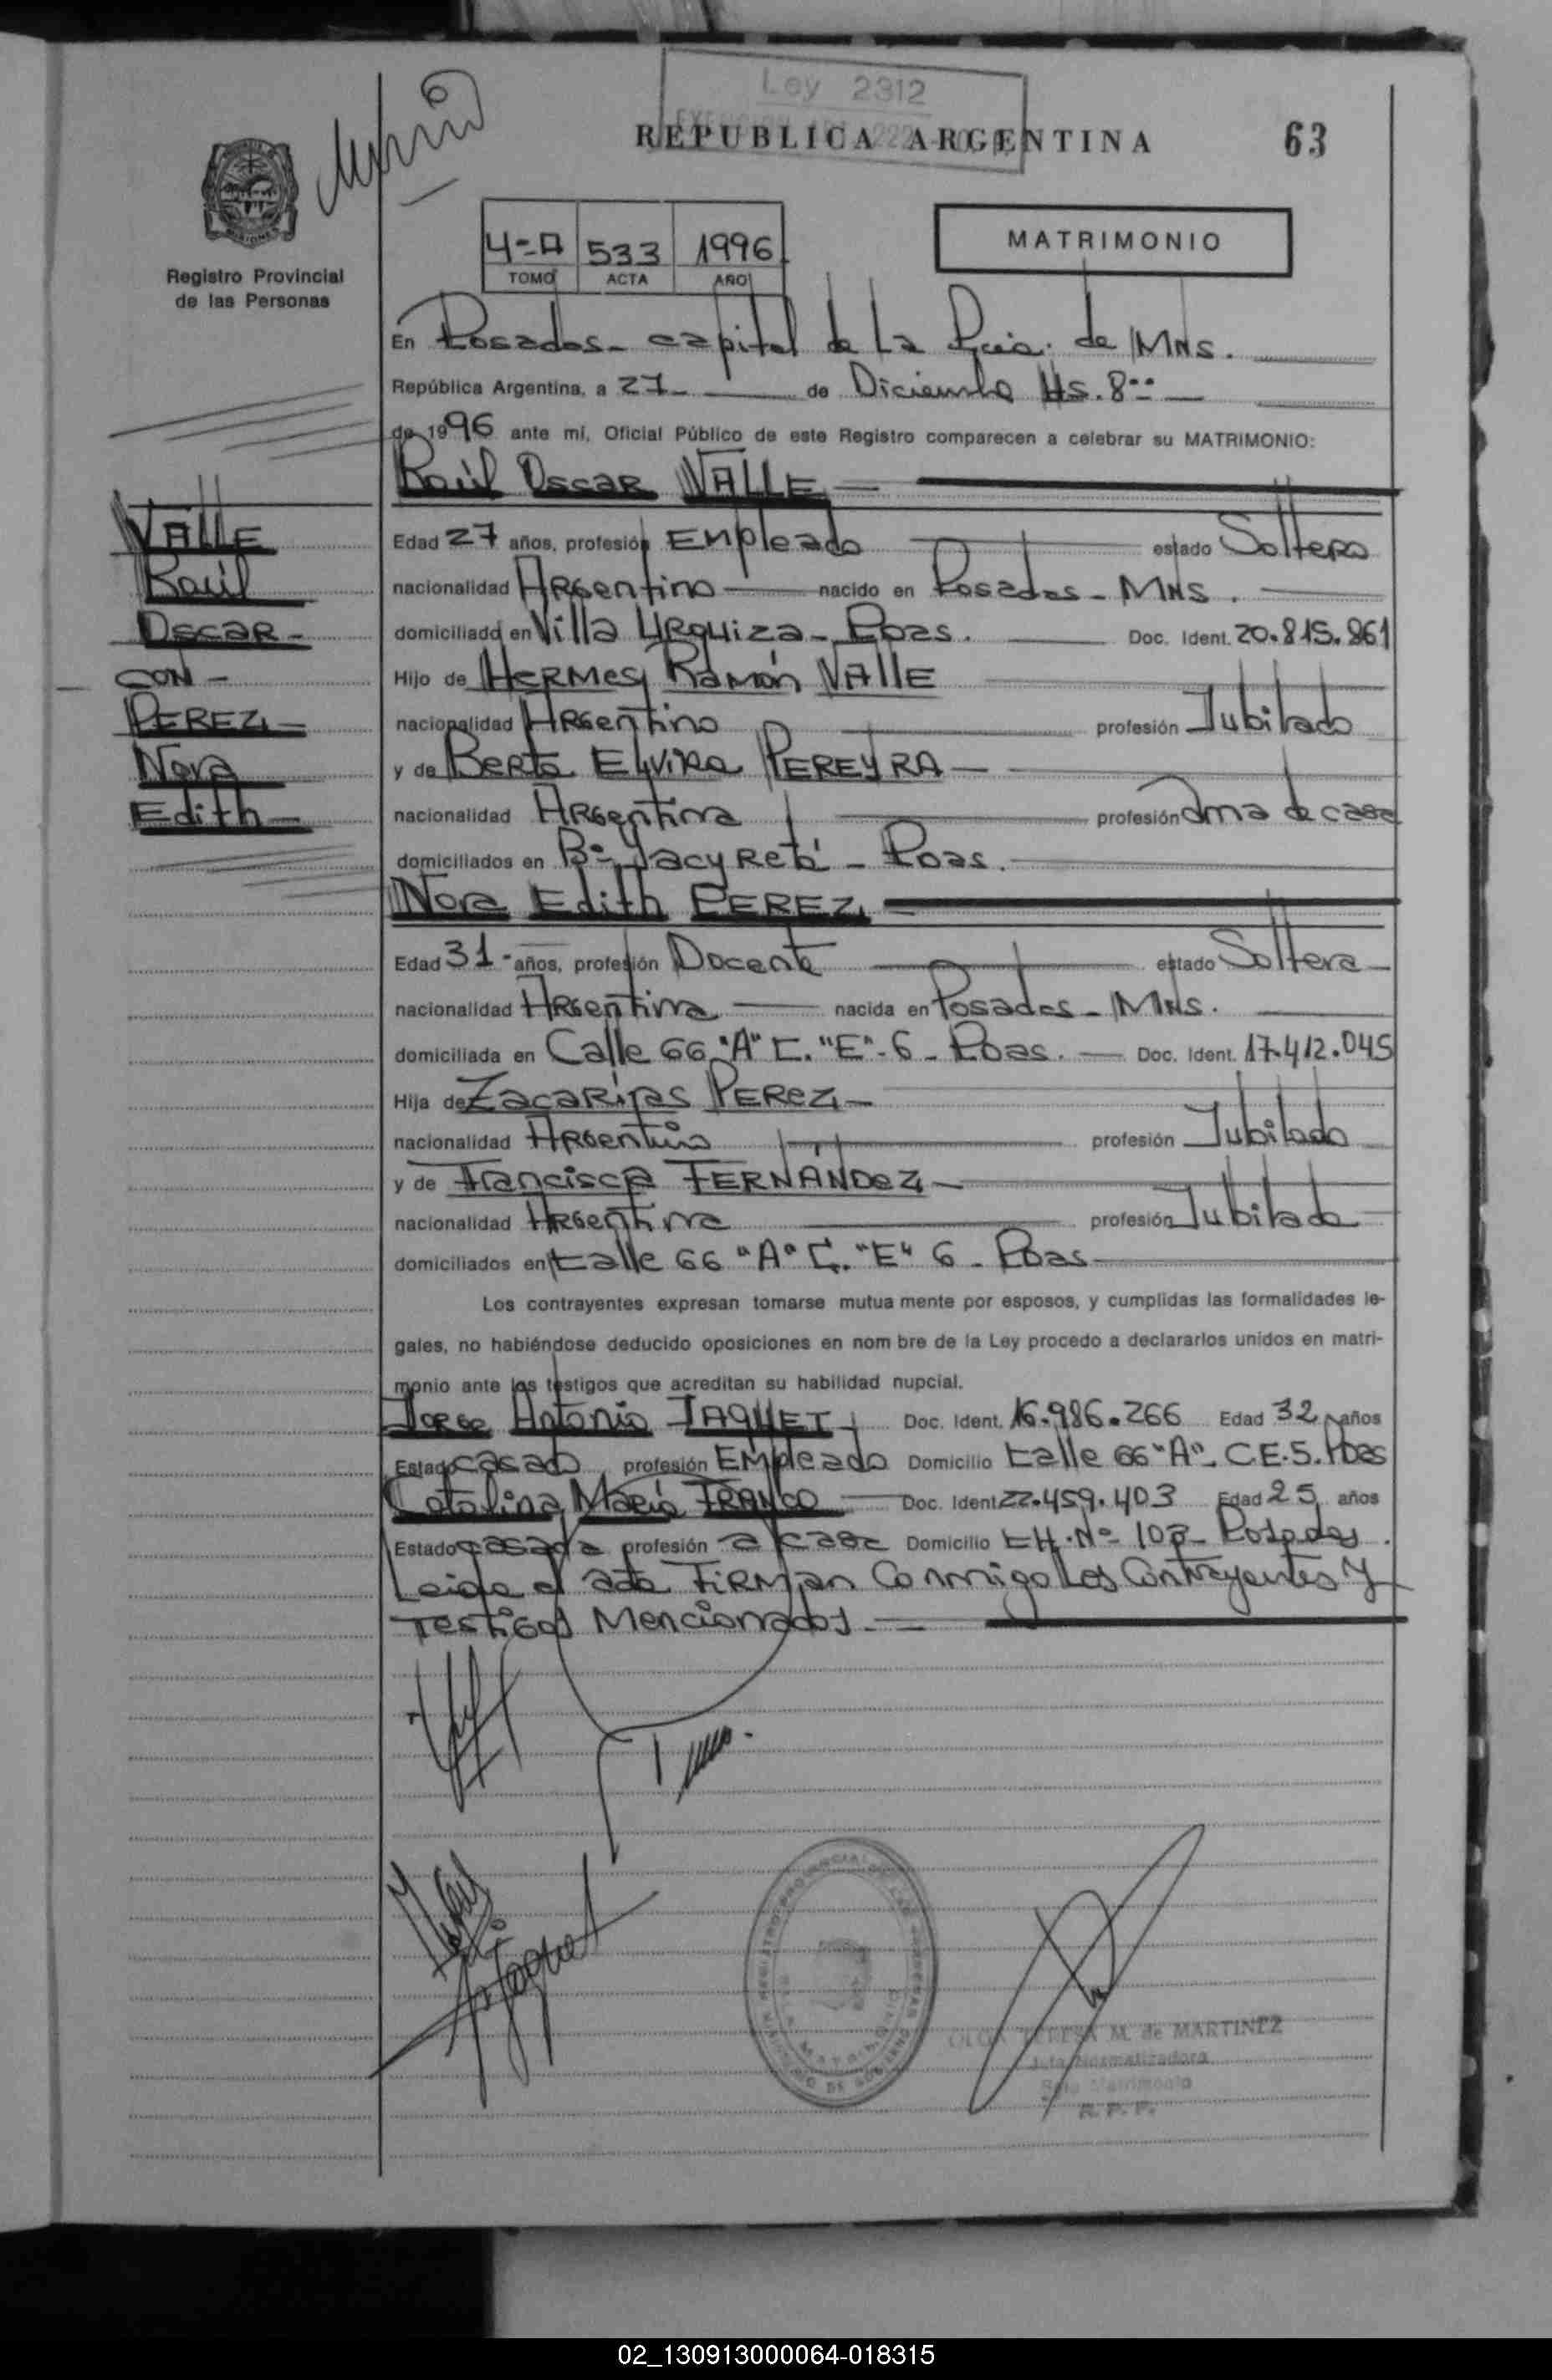 Ley 2312
REPUBLICA ARGENTINA
63
Registro Provincial
de las Personas
4-A 533 1996
TOMO ACTA AÑO
MATRIMONIO
En Posadas - capital de La Pcia. de MNS.
República Argentina, a 27 de Diciembre Hs. 8
de 1996 ante mí, Oficial Público de este Registro comparecen a celebrar su MATRIMONIO:
Raúl Oscar VALLE
VALLE
Raúl
Oscar
CON
PEREZ
Nora
Edith
Edad 27 años, profesión Empleado estado Soltero
nacionalidad Argentino nacido en Posadas - MNS.
domiciliado en Villa Urquiza - Pdas. Doc. Ident. 20.815.861
Hijo de HERMES Ramón VAllE
nacionalidad Argentino profesión Jubilado
y de BERTA ElviRA PEREYRA
nacionalidad Argentina profesión ama de casa
domiciliados en B° Yacyretá - Pdas.
Nora Edith PEREZ
Edad 31 años, profesión Docente estado Soltera
nacionalidad Argentina nacida en Posadas - MNS.
domiciliada en Calle 66 "A" C. "E" - 6 - Pdas. Doc. Ident. 17.412.045
Hija de Zacarías PEREZ
nacionalidad Argentino profesión Jubilado
y de Francisca FERNÁNDEZ
nacionalidad Argentina profesión Jubilada
domiciliados en Calle 66 "A" C. "E" 6 - Pdas
Los contrayentes expresan tomarse mutua mente por esposos, y cumplidas las formalidades le-
gales, no habiéndose deducido oposiciones en nom bre de la Ley procedo a declararlos unidos en matri-
monio ante los testigos que acreditan su habilidad nupcial.
Jorge Antonio JAQUET Doc. Ident. 16.986.266 Edad 32 años
Estado casado profesión Empleado Domicilio Calle 66 "A" - C.E.5. Pdas
Catalina María FRANCO Doc. Ident. 22.459.403 Edad 25 años
Estado casada profesión a casa Domicilio CH. N° Posadas
Leída el acta FIRMAN Conmigo Los Contrayentes Y
Testigos Mencionados
OLGA TERESA M. de MARTINEZ
Jefa Normatizadora
Sala Matrimonio
R. P. P.
02_130913000064-018315